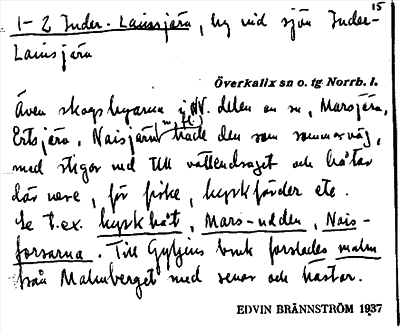 15
1-2 Inder-Lainsjärv, by vid sjön Inder-
Lainsjärv
Överkalix sn o. tg Norrb. l.
Även skogsbyarna i NV. delen av sn, Marsjärv,
Ertsjärv, Naisjärv (m. fl.) hade den som sommarväg,
med stigar vid till vattendraget och båtar
där vore, för fiske, kyrkfärder etc.
Se t.ex. kyrkbåt, Mars-udden, Nais-
forsarna. Till Gyljens bruk forslades malm
från Malmberget med renar och hästar.
EDVIN BRÄNNSTRÖM 1937